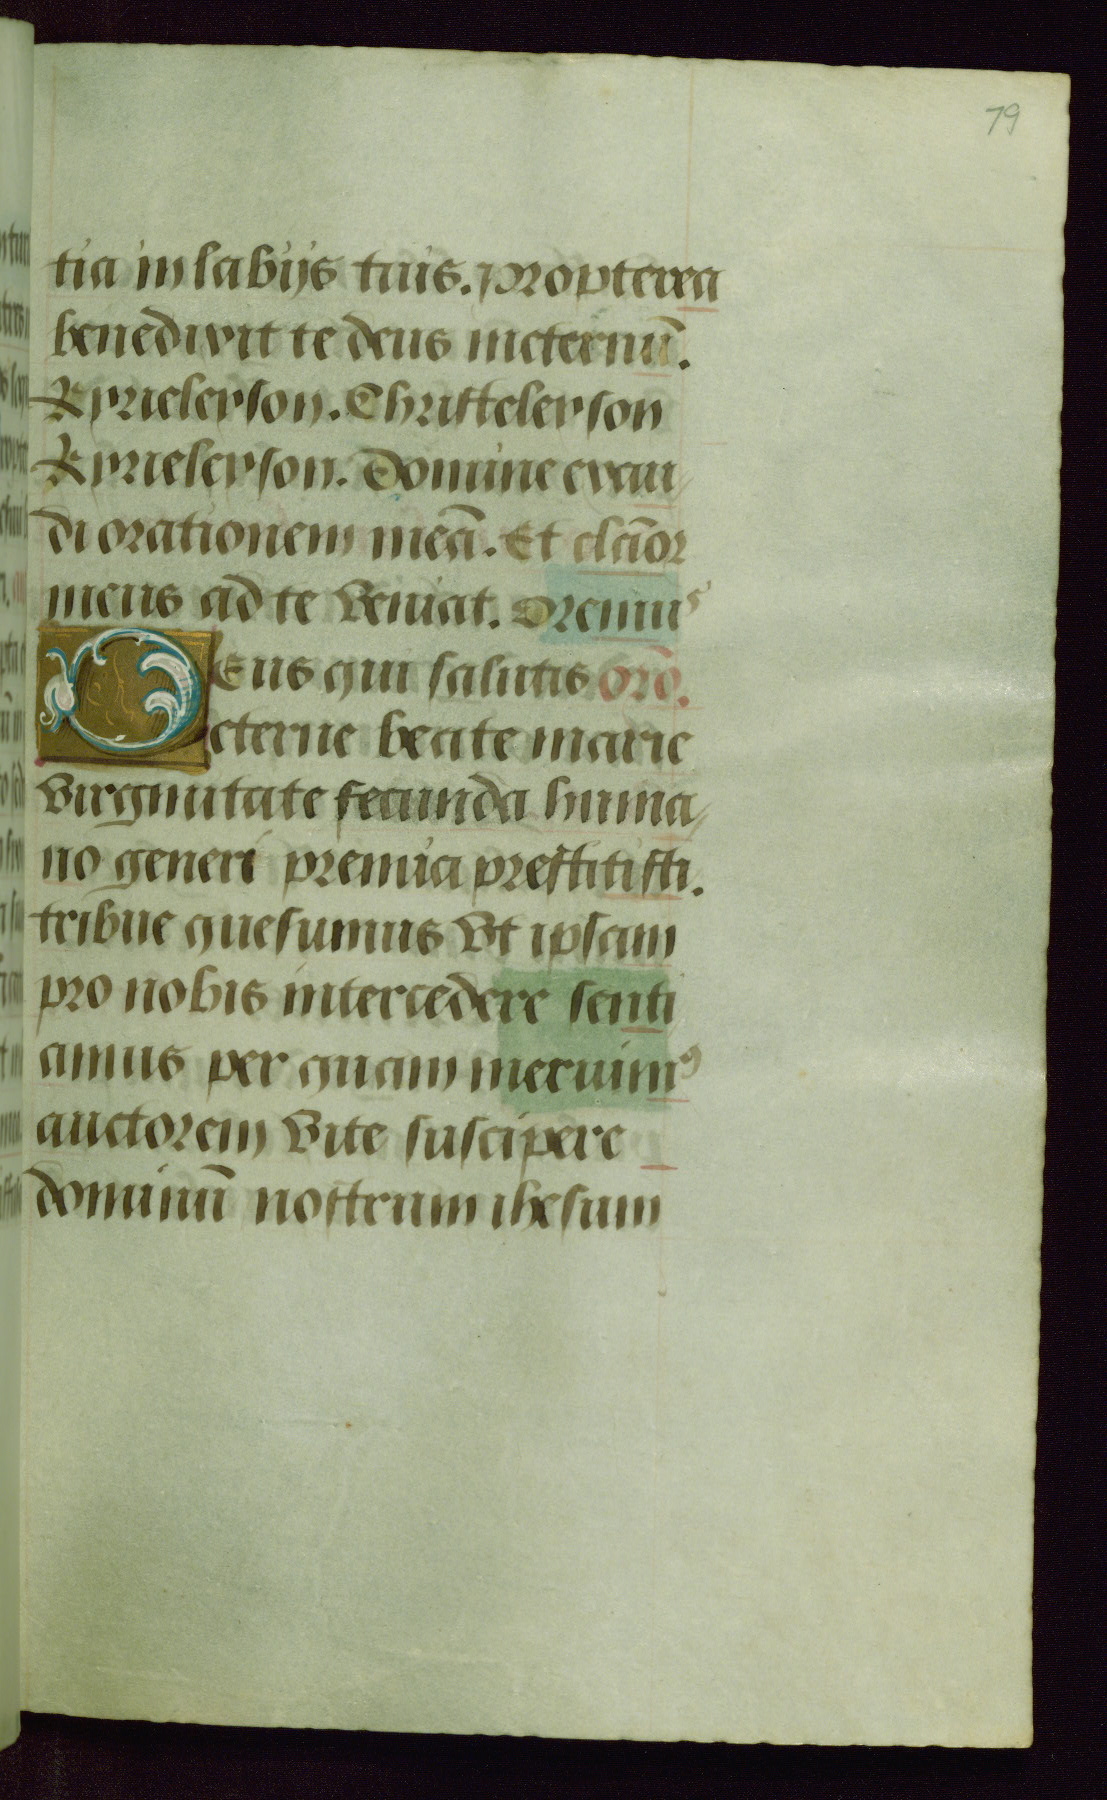 79
tia in labijs tuis. Propterea
benedixit te deus ineternū.
Kyrieleyson. Christeleyson
Kyrieleyson. Domine exau
di orationem meā. Et clāor
meus ad te veniat. Oremus
Deus qui salutis orō.
eterne beate marie
virginitate fecunda huma
no generi premia prestitisti.
tribue quesumus vt ipsam
pro nobis intercedere senti
amus per quam meruimꝰ
auctorem vite suscipere
dominū nostrum ihesum